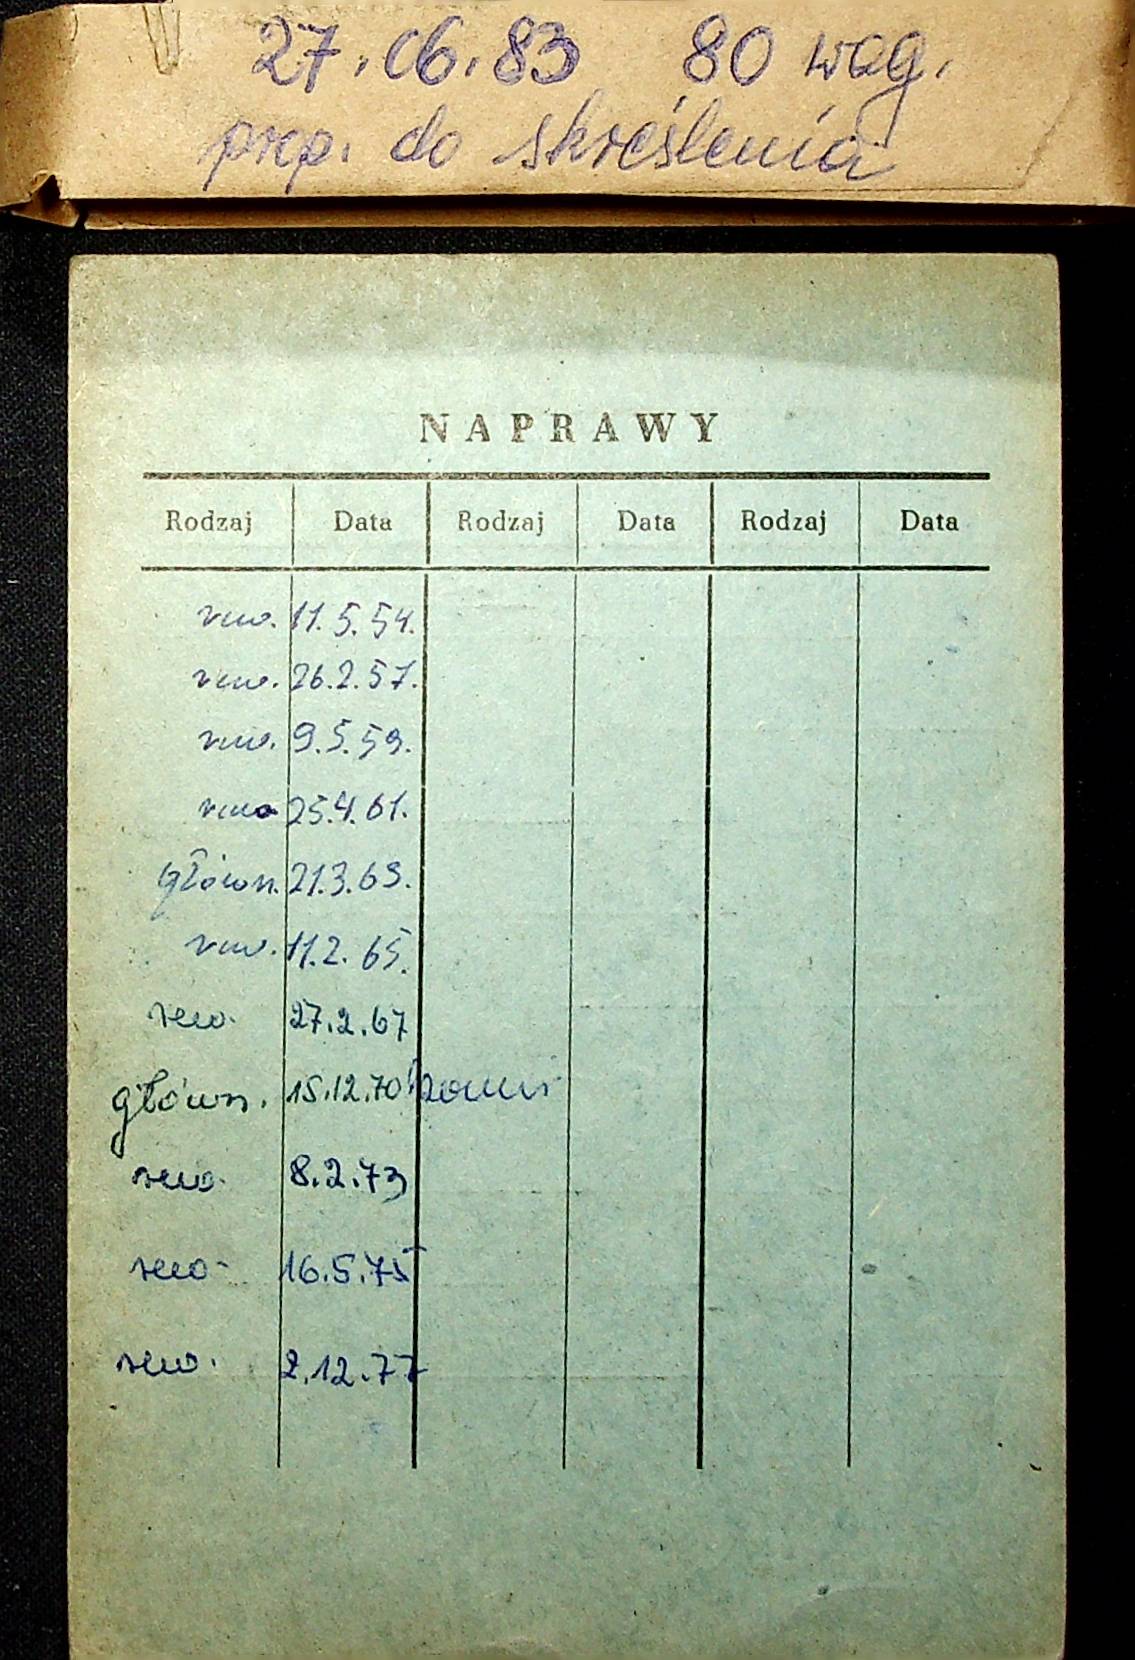 27.06.83 80 wag.
prop. do skreślenia
NAPRAWY
Rodzaj Data Rodzaj Data Rodzaj Data
rew. 11.5.54.
rew. 26.2.57.
rew. 9.5.59.
rew. 25.4.61.
główn. 21.3.63.
rew. 11.2.65.
rew. 27.2.67
główn. 15.12.70
rew. 8.2.73
rew. 16.5.75
rew. 2.12.77